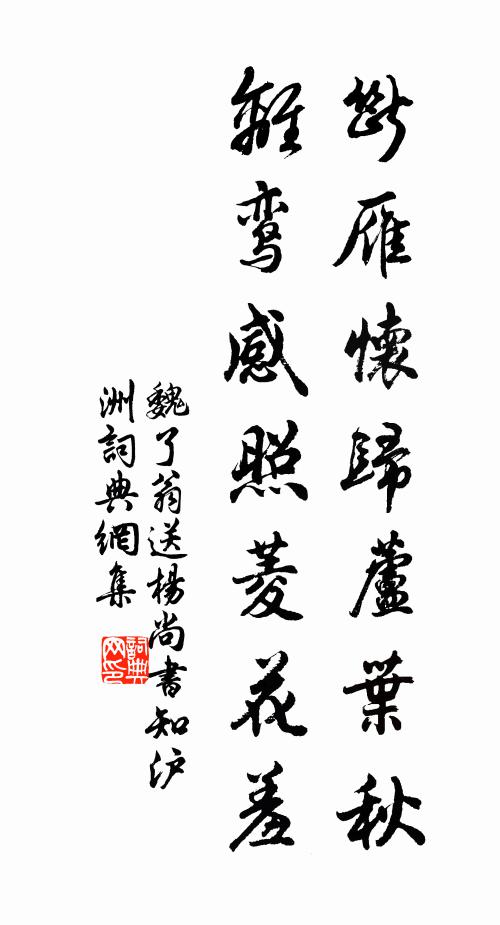 断雁懷歸蘆葉秋
離鸾感照菱花羞
魏了翁送楊尚書知沪
洲詞典網集
詞典网印